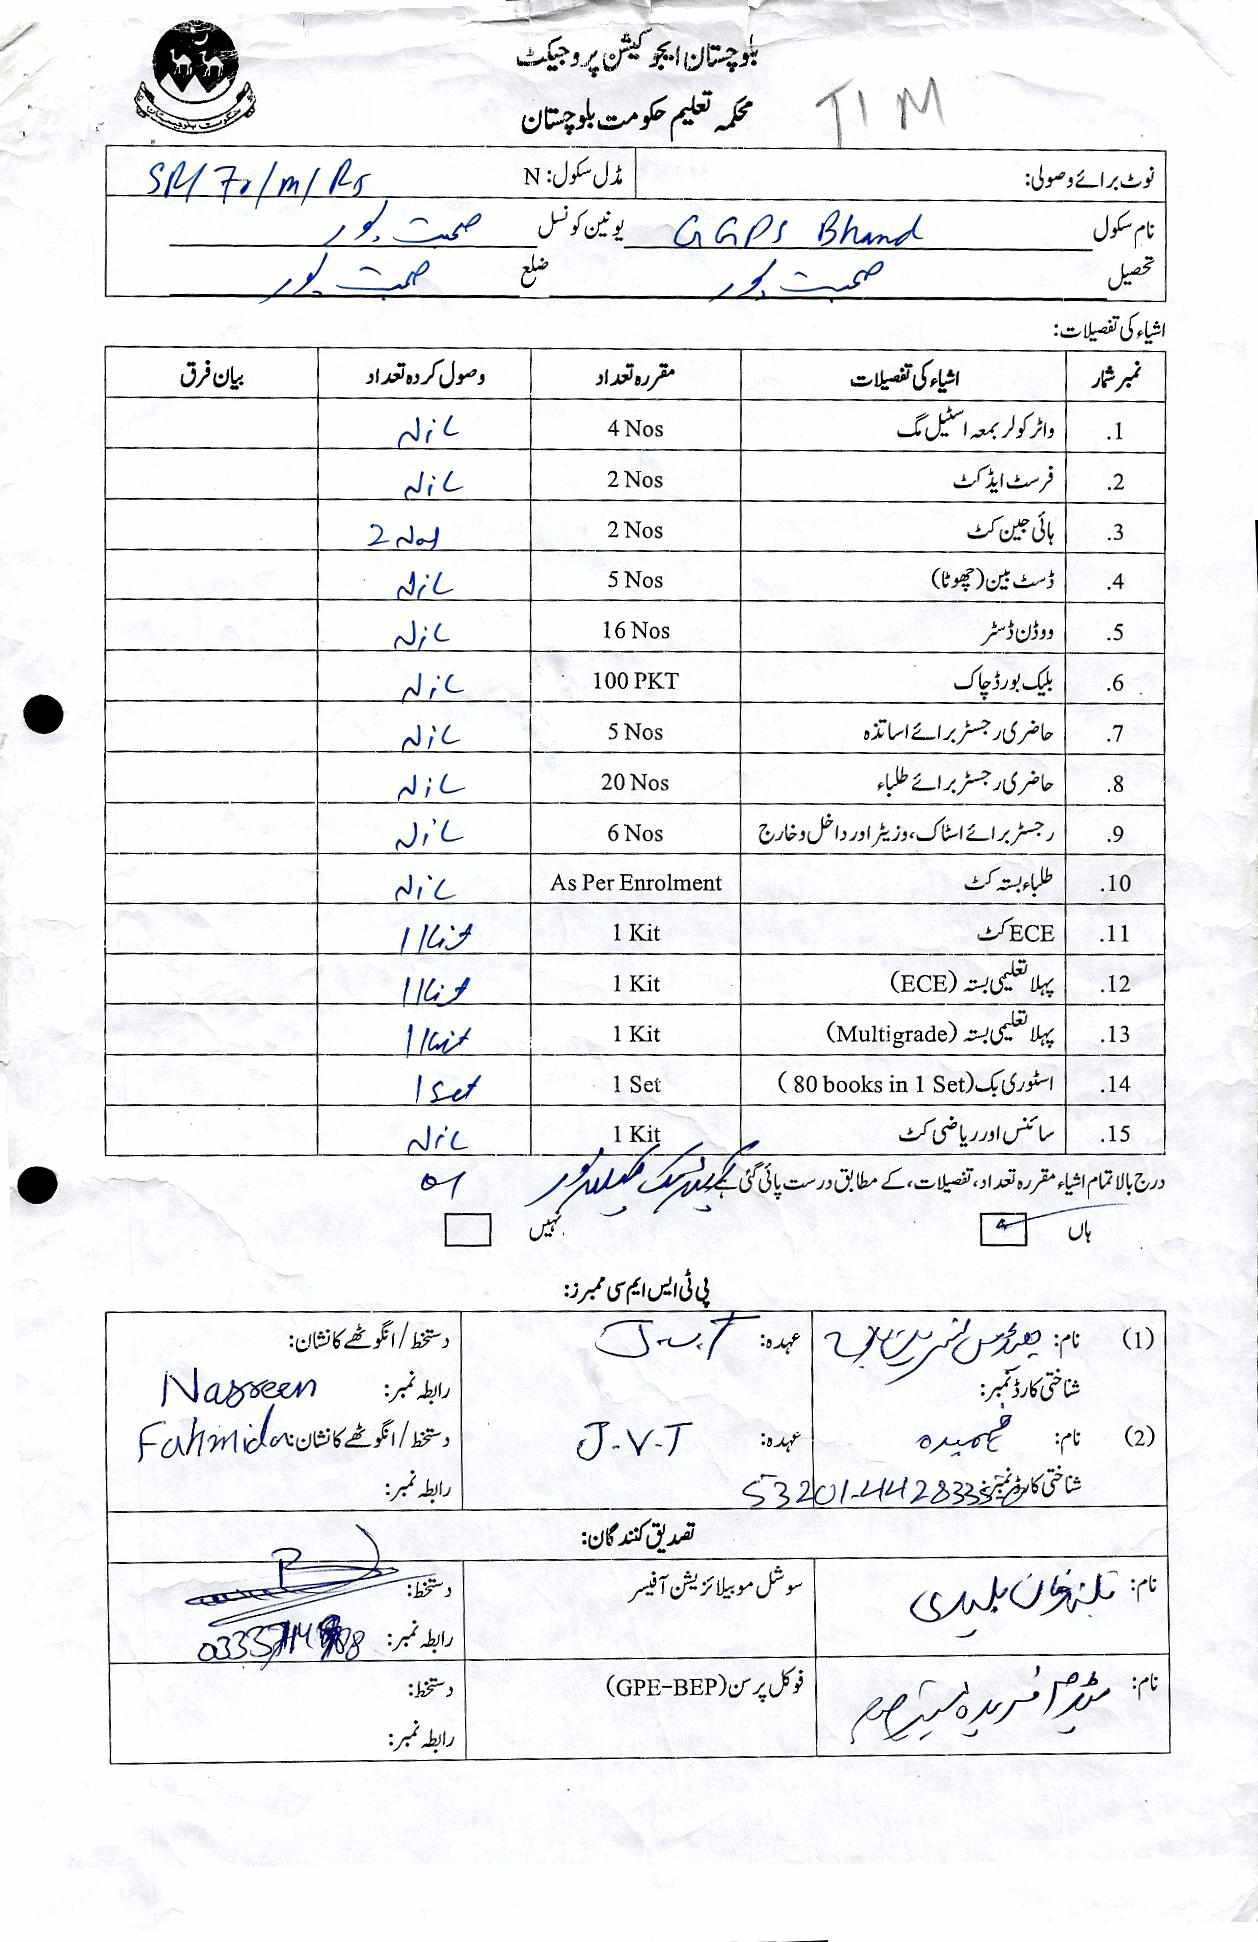 بلوچستان ایجوکیشن پروجیکٹ
محکمہ تعلیم حکومت بلوچستان
TIM
نوٹ برائے وصولی: مڈل سکول: N
نام سکول GGPS Bhand یونین کونسل صحبت پور
تحصیل صحبت پور ضلع صحبت پور
اشیاء کی تفصیلات:
نمبر شمار اشیاء کی تفصیلات مقررہ تعداد وصول کردہ تعداد بیان فرق
1. واٹر کولر بمعہ اسٹیل مگ 4 Nos Nil
2. فرسٹ ایڈ کٹ 2 Nos Nil
3. ہائی جین کٹ 2 Nos 2 Nos
4. ڈسٹ بین (چھوٹا) 5 Nos Nil
5. ووڈن ڈسٹر 16 Nos Nil
6. بلیک بورڈ چاک 100 PKT Nil
7. حاضری رجسٹر برائے اساتذہ 5 Nos Nil
8. حاضری رجسٹر برائے طلباء 20 Nos Nil
9. رجسٹر برائے اسٹاک، وزیٹر اور داخل و خارج 6 Nos Nil
10. طلباء بستہ کٹ As Per Enrolment Nil
11. ECE کٹ 1 Kit 1 Kit
12. پہلا تعلیمی بستہ (ECE) 1 Kit 1 Kit
13. پہلا تعلیمی بستہ (Multigrade) 1 Kit 1 Kit
14. اسٹوری بک (80 books in 1 Set) 1 Set 1 Set
15. سائنس اور ریاضی کٹ 1 Kit Nil
درج بالا تمام اشیاء مقررہ تعداد، تفصیلات، کے مطابق درست پائی گئی ہے 01
ہاں نہیں
پی ٹی ایس ایم سی ممبرز:
(1) نام: عہدہ: J.V.T دستخط / انگوٹھے کا نشان:
شناختی کارڈ نمبر: رابطہ نمبر: Nasreen
(2) نام: فہمیدہ عہدہ: J.V.T دستخط / انگوٹھے کا نشان: Fahmida
شناختی کارڈ نمبر: رابطہ نمبر:
تصدیق کنندگان:
نام: سوشل موبیلائزیشن آفیسر دستخط:
رابطہ نمبر:
نام: فوکل پرسن (GPE-BEP) دستخط:
رابطہ نمبر: